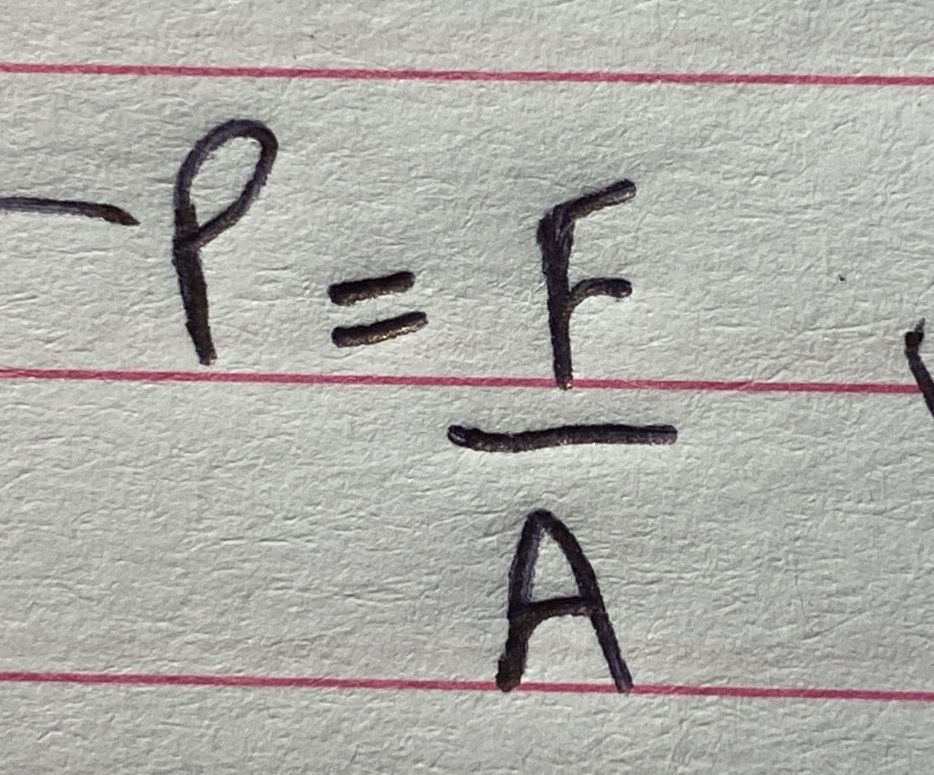 P = F
A